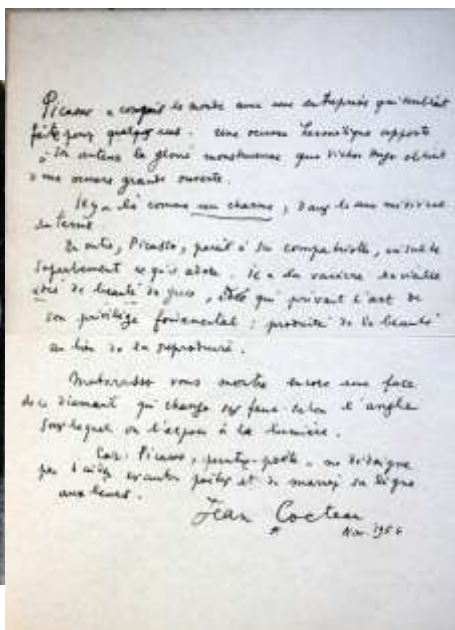 Picasso a conquis le monde avec une entreprise qui semblait
faite pour quelques uns. Une oeuvre hermétique apporte
à son auteur la gloire monstrueuse que Victor Hugo obtint
une oeuvre grande ouverte.
Il y a là comme un charme, dans le sens médiéval
du terme.
En outre, Picasso, pareil à son compatriote, insulte
superbement ce qu'il adore. Il a du vaincre la vieille
idée de beauté, idée qui privait l'art de
son privilège fondamental : produire de la beauté
au lieu de la reproduire.
Matarasso vous montre encore une face
de ce diamant qui change ses feux selon l'angle
sous lequel on l'expose à la lumière.
Car Picasso, peintre-poète, ne dédaigne
pas d'autres poètes et de marier sa ligne
aux leurs.
Jean Cocteau
Nov. 1956